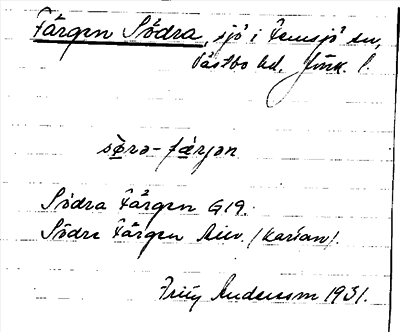 Färgen Södra, sjö i Femsjö sn,
Västbo hd. Jönk. l.
sø̀rə-fǽrjən
Södra Färgen G 19.
Södre Färgen (Karian).
Fritz Andersson 1931.